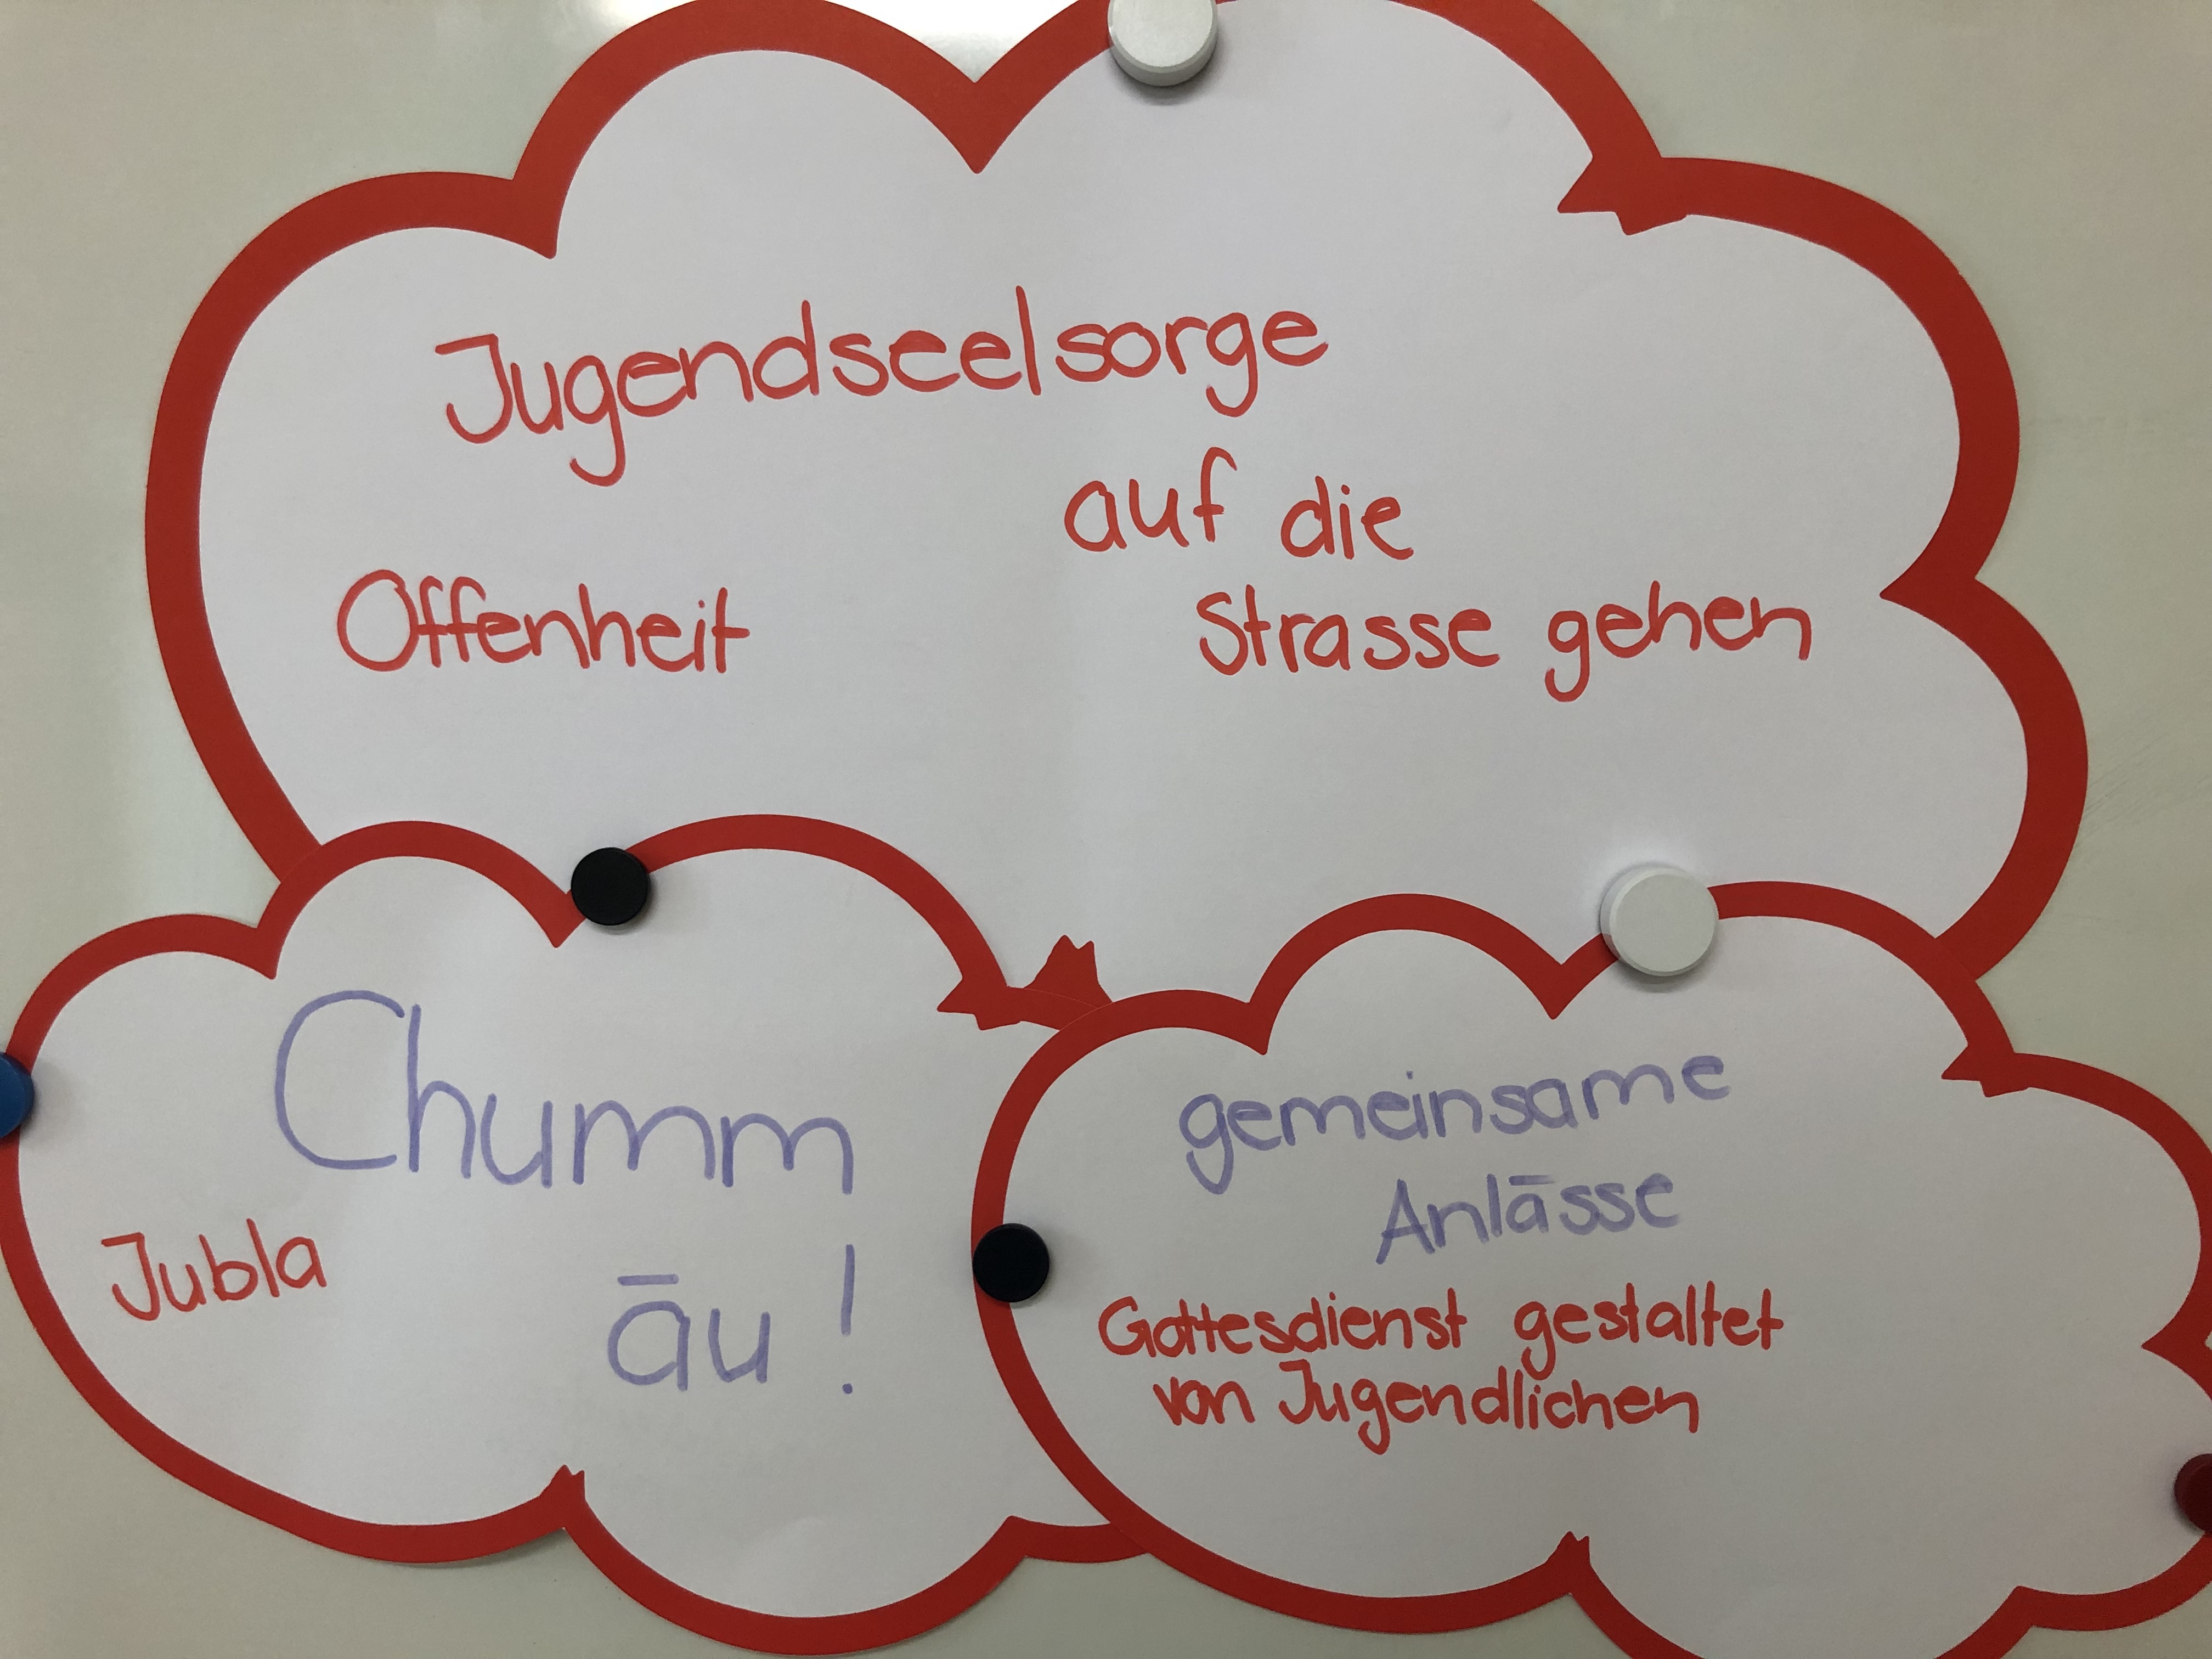 Jugendseelsorge
auf die
Offenheit
Strasse gehen
Chumm
Jubla
äu!
gemeinsame
Anlässe
Gottesdienst gestaltet
von Jugendlichen